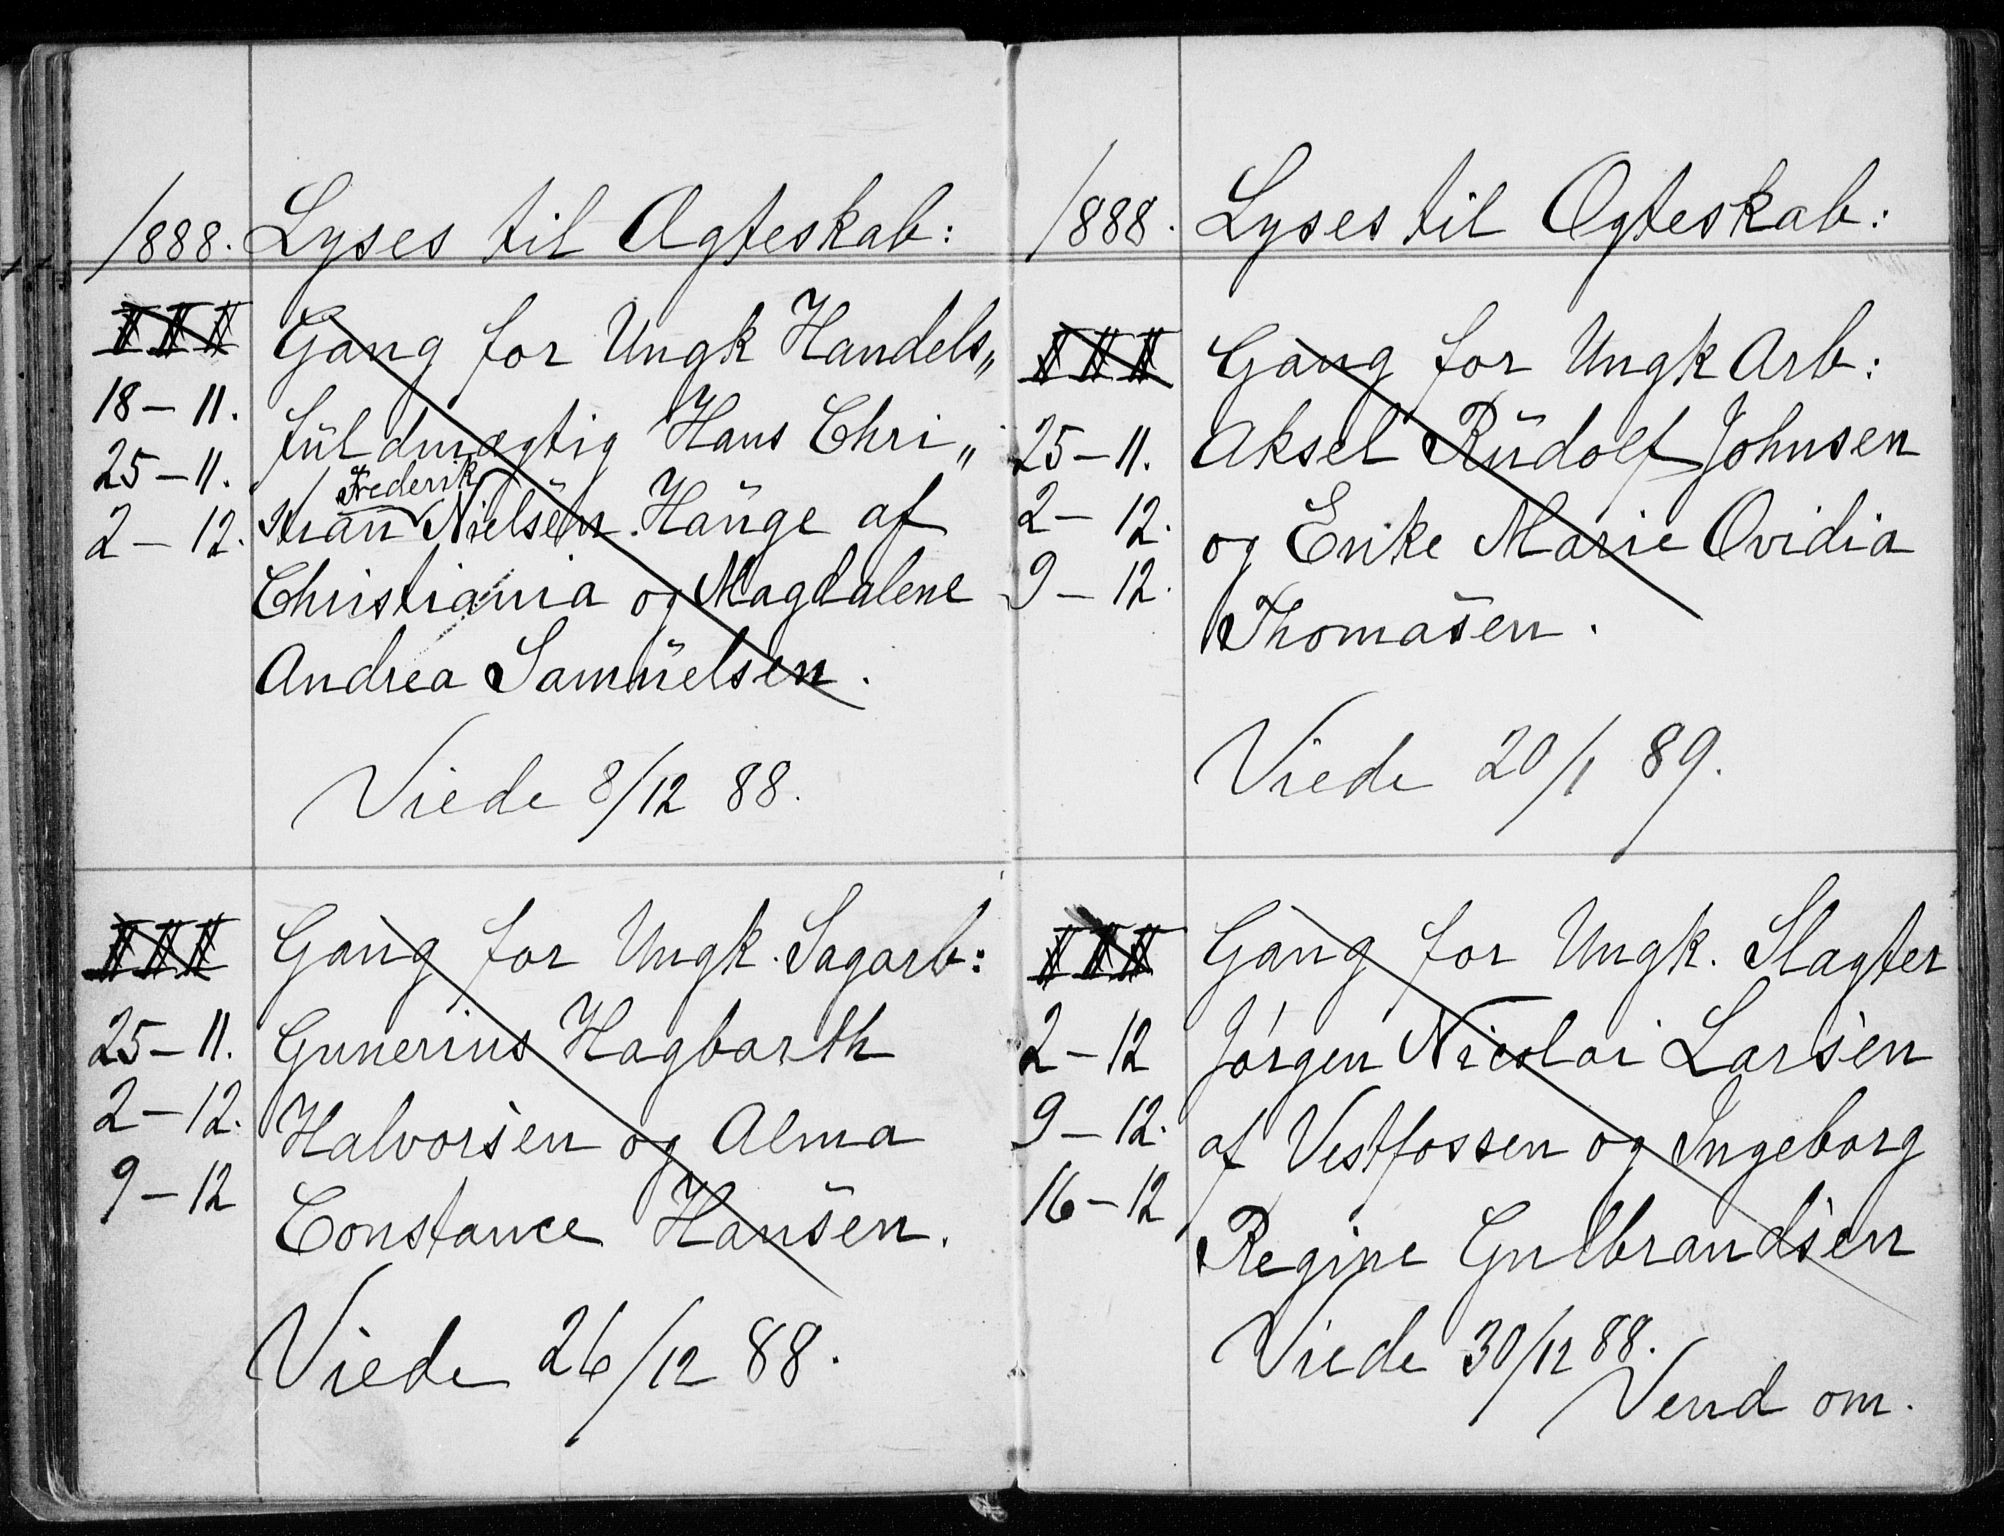 1888. Lyses til Ægteskab:
III Gang for Ungk Handels„
18–11. fuldmægtig Hans Chri„
25–11. Frederik
2–12. stian Nielsen Hauge af
Christiania og Magdalene
Andrea Samuelsen.
Viede 8/12 88.
III Gang for Ungk. Sagarb:
25–11. Gunerius Hagbarth
2–12. Halvorsen og Alma
9–12 Constance Hansen.
Viede 26/12 88.
1888. Lyses til Ægteskab:
III Gang for Ungk Arb:
25–11. Aksel Rudolf Johnsen
2–12. og Enke Marie Ovidia
9–12. Thomasen.
Viede 20/1 89.
III Gang for Ungk. Slagter
2–12 Jørgen Nicolai Larsen
9–12. af Vestfossen og Ingeborg
16–12 Regine Gulbrandsen
Viede 30/12 88.
Vend om.